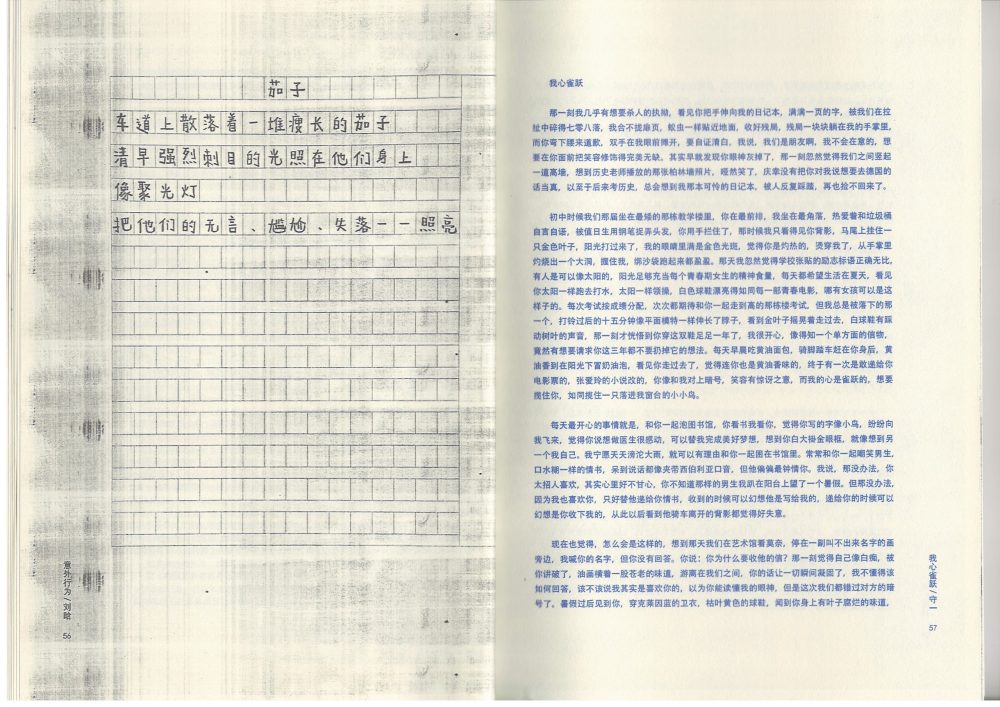 茄子
车道上散落着一堆瘦长的茄子
清早强烈刺目的光照在他们身上
像聚光灯
把他们的无言、尴尬、失落一一照亮
意外行为/刘晗
56
我心雀跃
那一刻我几乎有想要杀人的执拗，看见你把手伸向我的日记本，满满一页的字，被我们在拉
扯中碎得七零八落，我合不拢扉页，蚁虫一样贴近地面，收好残局，残局一块块躺在我的手掌里，
而你弯下腰来道歉，双手在我眼前摊开，要自证清白，我说，我们是朋友啊，我不会在意的，想
要在你面前把笑容修饰得完美无缺。其实早就发现你眼神灰掉了，那一刻忽然觉得我们之间竖起
一道高墙，想到历史老师播放的那张柏林墙照片，哑然笑了，庆幸没有把你对我说想要去德国的
话当真，以至于后来考历史，总会想到我那本可怜的日记本，被人反复踩踏，再也捡不回来了。
初中时候我们那届坐在最矮的那栋教学楼里，你在最前排，我坐在最角落，热爱着和垃圾桶
自言自语，被值日生用钢笔捉弄头发，你用手拦住了，那时候我只看得见你背影，马尾上挂住一
只金色叶子，阳光打过来了，我的眼睛里满是金色光斑，觉得你是灼热的，烫穿我了，从手掌里
灼烧出一个大洞，握住我，绑沙袋跑起来都盈盈。那天我忽然觉得学校张贴的励志标语正确无比，
有人是可以像太阳的，阳光足够充当每个青春期女生的精神食量，每天都希望生活在夏天，看见
你太阳一样跑去打水，太阳一样领操，白色球鞋漂亮得如同每一部青春电影，哪有女孩可以是这
样子的。每次考试按成绩分配，次次都期待和你一起走到高的那栋楼考试，但我总是被落下的那
一个，打铃过后的十五分钟像平面模特一样伸长了脖子，看到金叶子摇晃着走过去，白球鞋有踩
动树叶的声音，那一刻才恍悟到你穿这双鞋足足一年了，我很开心，像得知一个单方面的信物，
竟然有想要请求你这三年都不要扔掉它的想法。每天早晨吃黄油面包，骑脚踏车赶在你身后，黄
油香到在阳光下冒奶油泡，看见你走过去了，觉得连你也是黄油香味的，终于有一次是敢递给你
电影票的，张爱玲的小说改的，你像和我对上暗号，笑容有惊讶之意，而我的心是雀跃的，想要
揽住你，如同揽住一只落进我窗台的小小鸟。
每天最开心的事情就是，和你一起泡图书馆，你看书我看你，觉得你写的字像小鸟，纷纷向
我飞来，觉得你说想做医生很感动，可以替我完成美好梦想，想到你白大褂金眼框，就像想到另
一个我自己，我宁愿天天滂沱大雨，就可以有理由和你一起困在书馆里。常常和你一起嘲笑男生，
口水糊一样的情书，呆到说话都像夹带西伯利亚口音，但他偏偏最钟情你。我说，那没办法，你
太招人喜欢，其实心里好不甘心，你不知道那样的男生我趴在阳台上望了一个暑假。但那没办法，
因为我也喜欢你，只好替他递给你情书，收到的时候可以幻想他是写给我的，递给你的时候可以
幻想是你收下我的，从此以后看到他骑车离开的背影都觉得好失意。
现在也觉得，怎么会是这样的，想到那天我们在艺术馆看莫奈，停在一副叫不出来名字的画
旁边，我喊你的名字，但你没有回答。你说：你为什么要收他的信？那一刻觉得自己像白痴，被
你讲破了，油画横着一股苍老的味道，游离在我们之间，你的话让一切瞬间凝固了，我不懂得该
如何回答，该不该说我其实是喜欢你的，以为你能读懂我的眼神，但是这次我们都错过对方的暗
号了。暑假过后见到你，穿克莱因蓝的卫衣，枯叶黄色的球鞋，闻到你身上有叶子腐烂的味道，
我心雀跃/守一
57